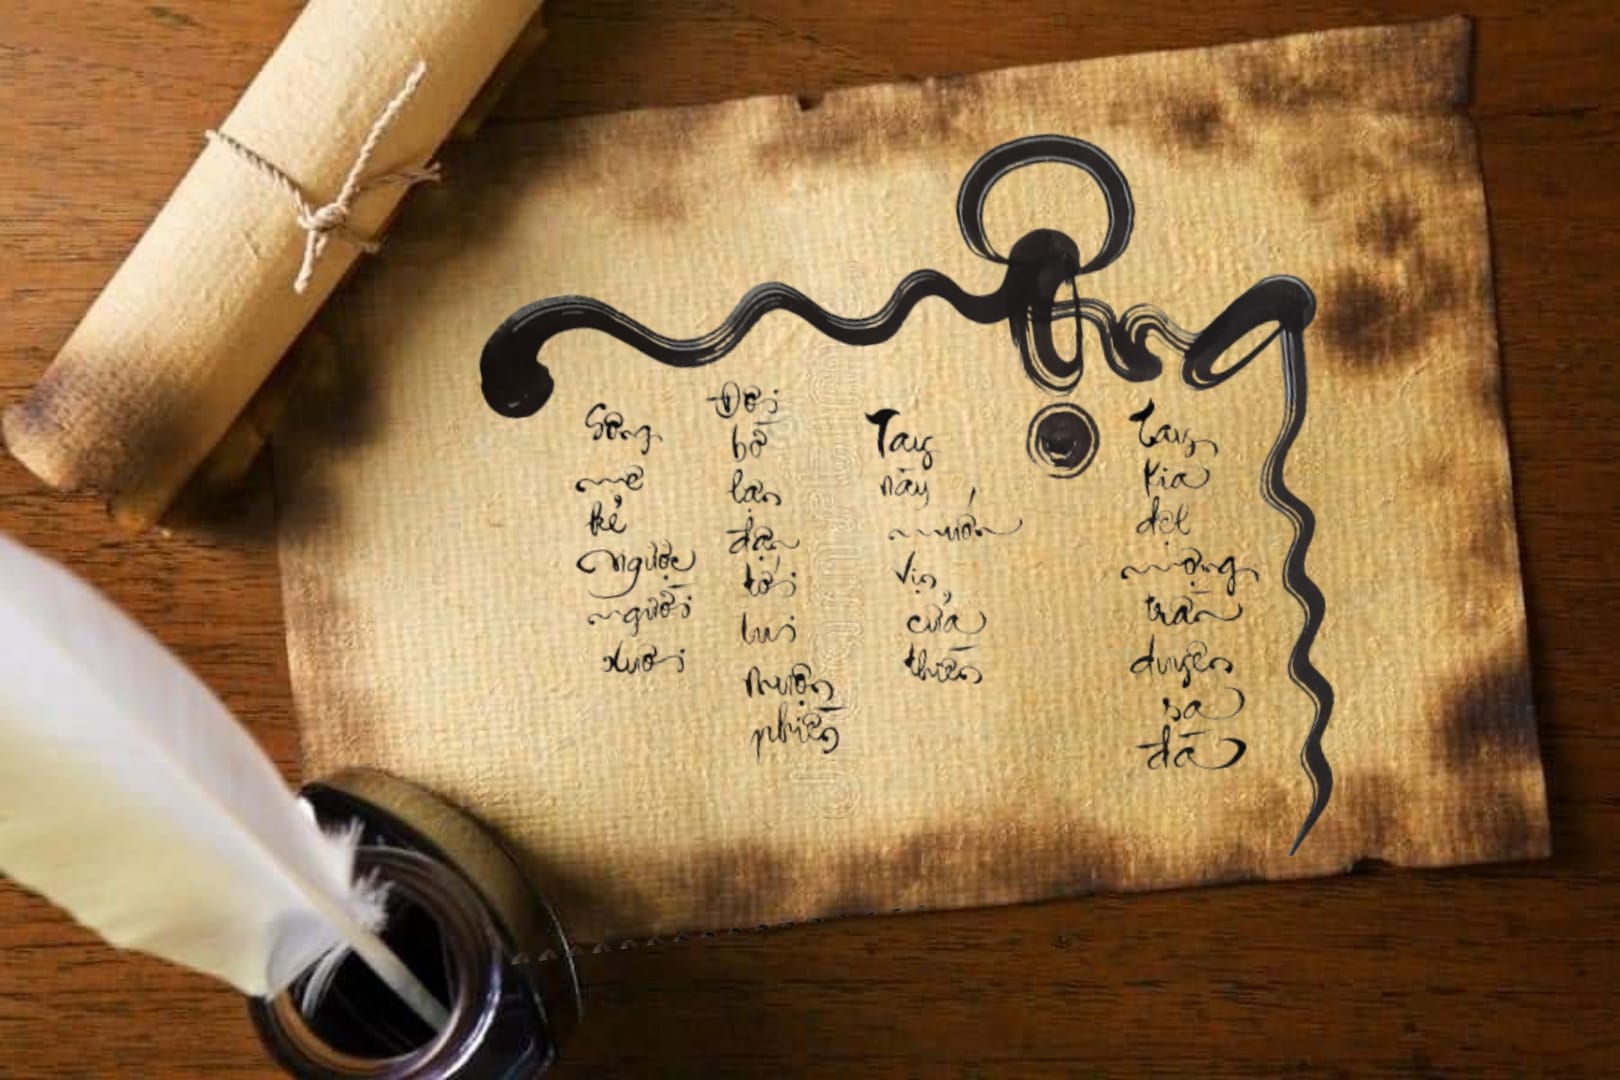 Mộng
Sông mê kẻ ngược người xuôi
Đôi bờ lận đận tới lui muộn phiền
Tay này muốn vịn cửa thiền
Tay kia dệt mộng trần duyên sa đà